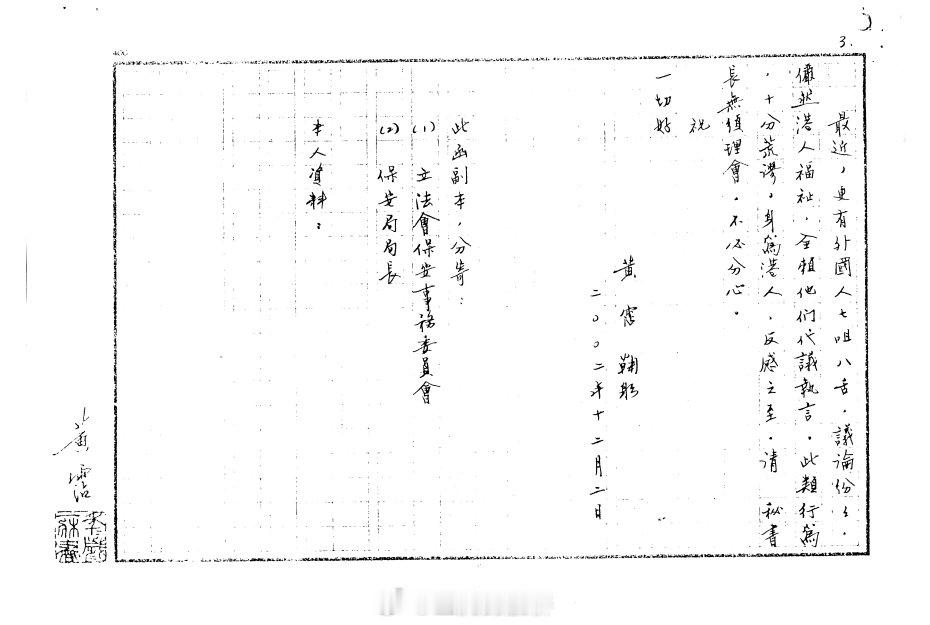 3.
最近，更有外國人七咀八舌，議論份份，
儼然港人福祉，全賴他們代議執言，此類行為
，十分荒謬，身為港人，反感之至，請 秘書
長無須理會，不必分心。
祝
一切好
黃霑 鞠躬
二〇〇二年十二月二日
此函副本，分寄：
(1) 立法會保安事務委員會
(2) 保安局局長
本人資料：
黃霑